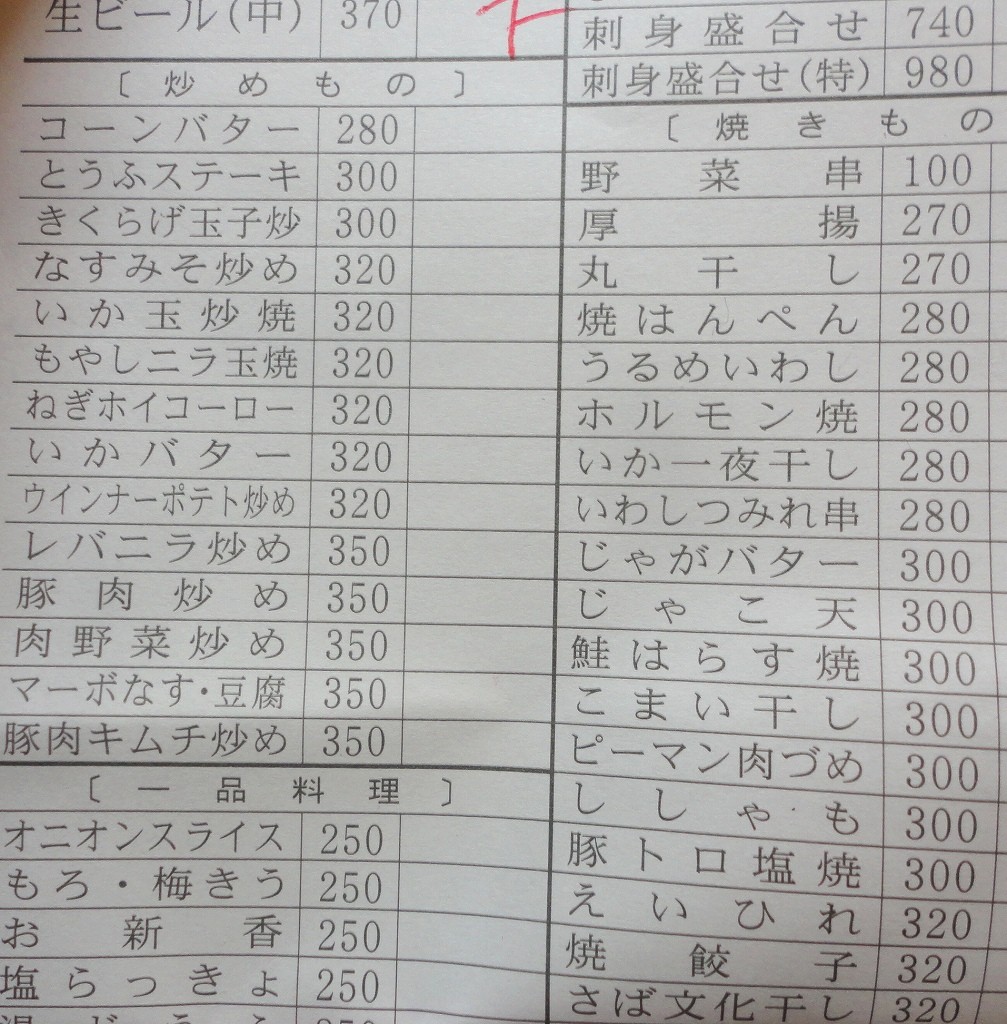 生ビール(中) 370
〔炒めもの〕
コーンバター 280
とうふステーキ 300
きくらげ玉子炒 300
なすみそ炒め 320
いか玉炒焼 320
もやしニラ玉焼 320
ねぎホイコーロー 320
いかバター 320
ウインナーポテト炒め 320
レバニラ炒め 350
豚肉炒め 350
肉野菜炒め 350
マーボなす・豆腐 350
豚肉キムチ炒め 350
〔一品料理〕
オニオンスライス 250
もろ・梅きう 250
お新香 250
塩らっきょ 250
刺身盛合せ 740
刺身盛合せ(特) 980
〔焼きもの
野菜串 100
厚揚 270
丸干し 270
焼はんぺん 280
うるめいわし 280
ホルモン焼 280
いか一夜干し 280
いわしつみれ串 280
じゃがバター 300
じゃこ天 300
鮭はらす焼 300
こまい干し 300
ピーマン肉づめ 300
ししゃも 300
豚トロ塩焼 300
えいひれ 320
焼餃子 320
さば文化干し 320